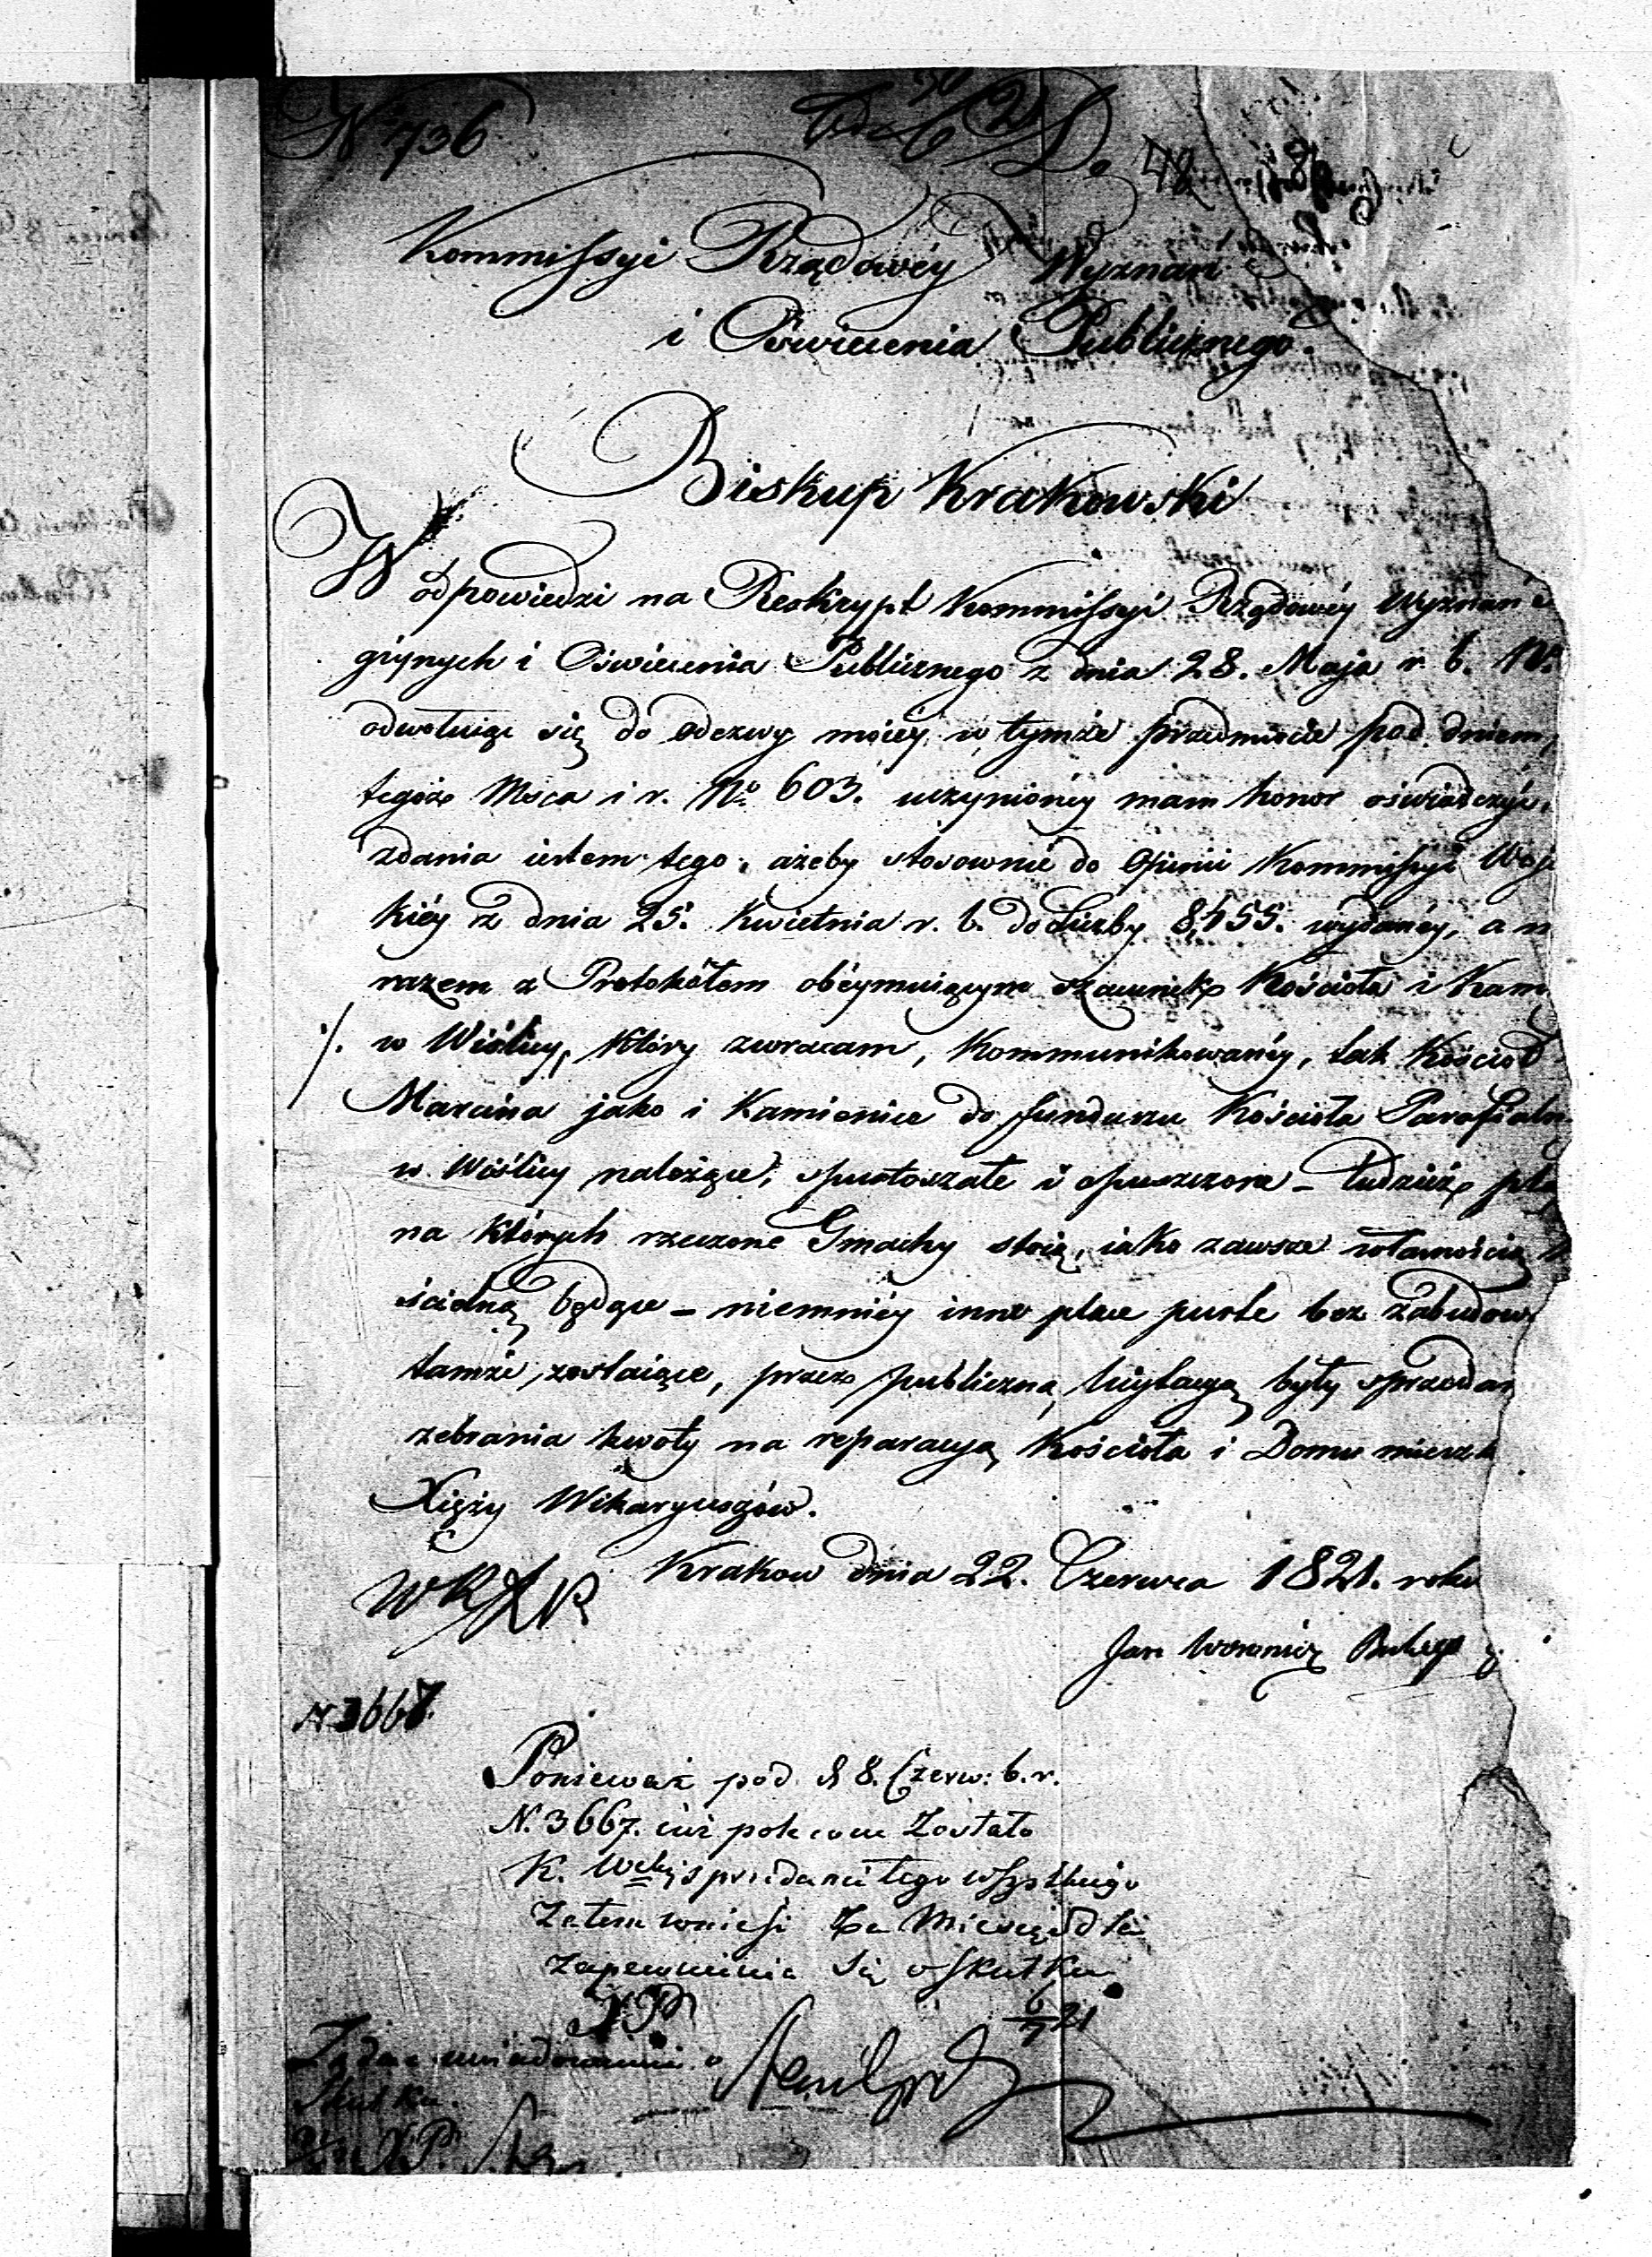 N 736
Do
48
Kommissyi Rządowéy Wyznań
i Oświecenia Publicznego.
Biskup Krakowski
W odpowiedzi na Reskrypt Kommissyi Rządowéy Wyznań
giynych i Oświecenia Publicznego z dnia 28. Maja r. b. No
odwołuiąc się do odezwy moiey w tymże przedmiocie pod dniem
tegoż Msca i r. No 603. uczynioney mam honor oświadczyć,
zdania iestem tego, ażeby stosownie do Opinii Kommissyi Woje
kiéy z dnia 25. Kwietnia r. b. do Liczby 8,455. wydanéy, a
razem z Protokółem obéymuiącym szacunek Kościoła i Kam
w Wiślicy, który zwracam, kommunikowanéy, tak Kościoł
Marcina jako i Kamienice do funduszu Kościoła Parafialn
w Wiślicy należące, spustoszałe i opuszczone – tudzież pla
na których rzeczone Gmachy stoią, iako zawsze własnością
ścielną będące – niemniéy inne place puste bez zabudow
tamże zostaiące, przez publiczną licytacyą były sprzedan
zebrania kwoty na reparacyą Kościoła i Domu mieszk
Xięży Wikaryuszów.
Krakow dnia 22. Czerwca 1821. roku
Jan Woronicz Biskup
N 3667.
Ponieważ pod d 8. Czerw: b. r.
N. 3667. iuż polecone zostało
K. Wdzkiej sprzedanie tego wszystkiego
Zatem wniesi za Miesiąc dla
zapewnienia się o skutku
6/7 21
XP
Żądać uwiadomienia o
skutku.
XP.